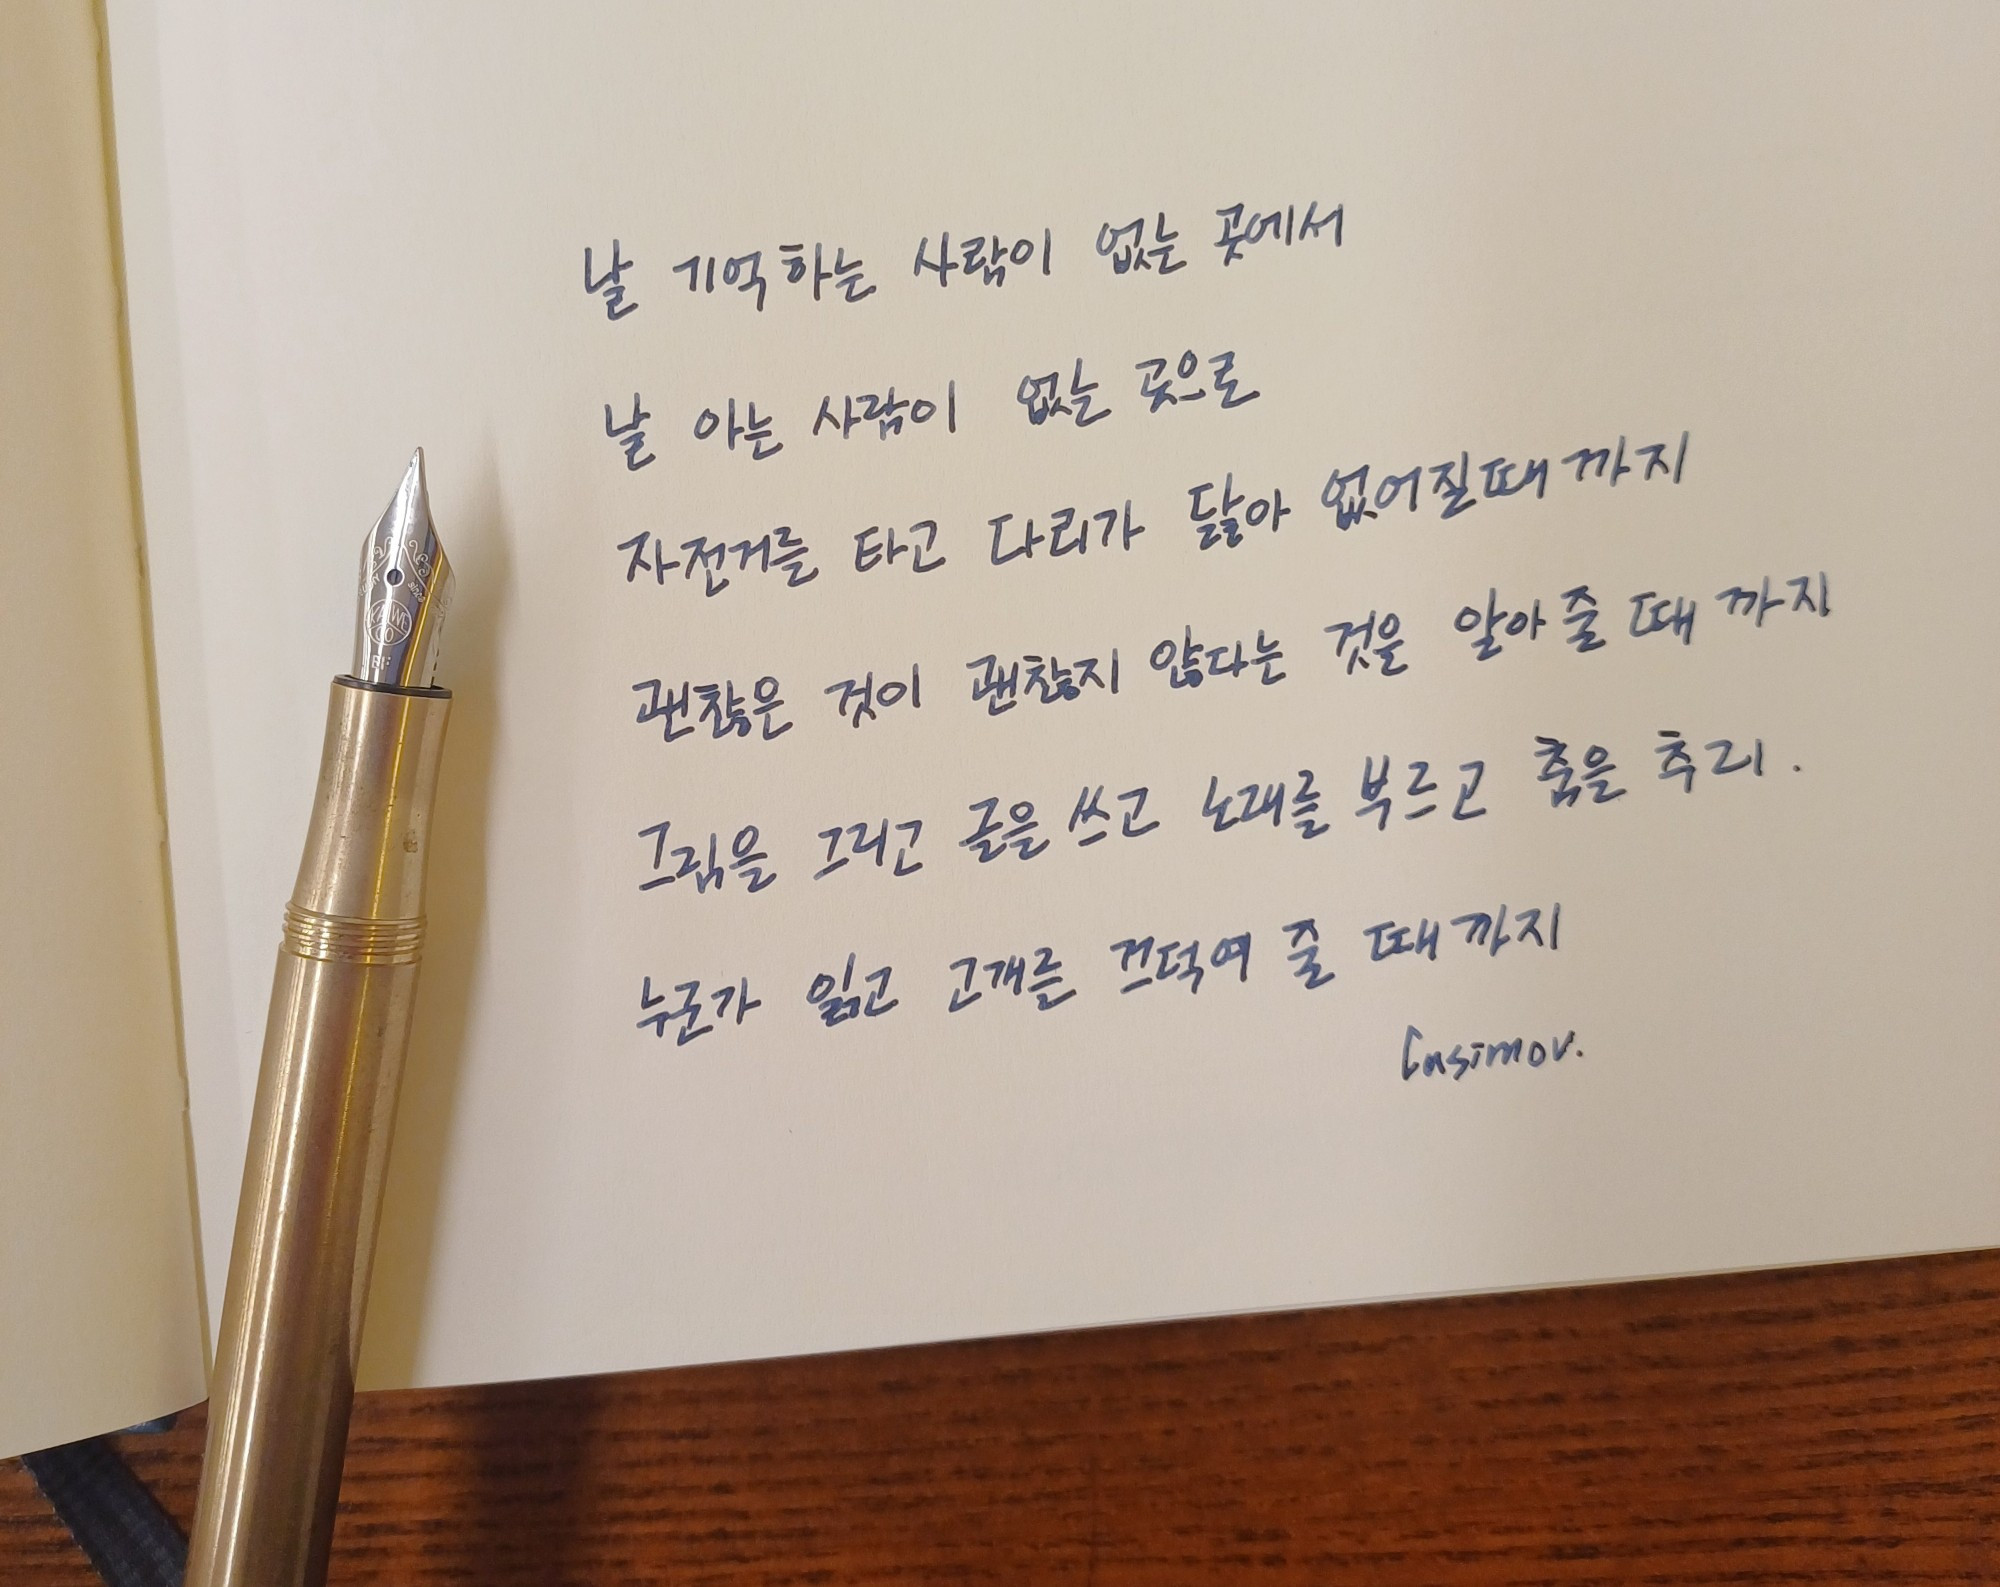 날 기억하는 사람이 없는 곳에서
날 아는 사람이 없는 곳으로
자전거를 타고 다리가 닳아 없어질때까지
괜찮은 것이 괜찮지 않다는 것을 알아줄 때까지
그림을 그리고 글을 쓰고 노래를 부르고 춤을 추리.
누군가 읽고 고개를 끄덕여 줄 때까지
Casimov.
KAWE
CO
BF